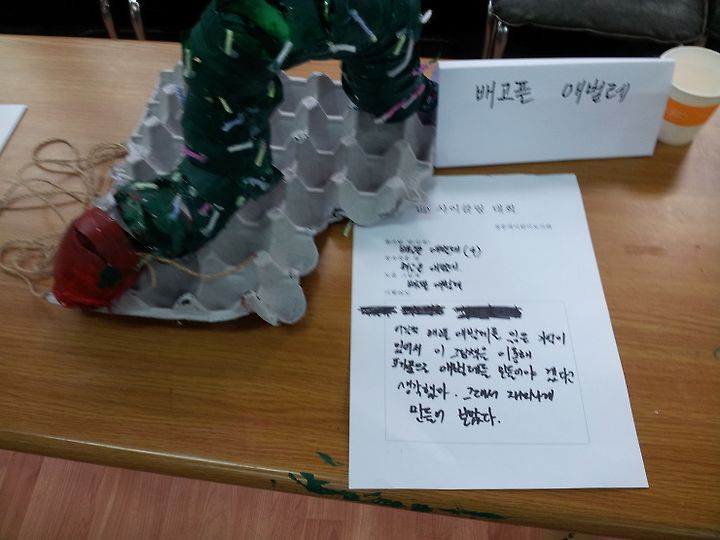 배고픈 애벌레
up 사이클링 대회
배고픈 애벌레 (4)
배고픈 애벌레
배고픈 애벌레
배고픈 애벌레를 읽은 기억이
있어서 이 그림책은 이용해
애벌레를 만들어야 겠다고
생각했다. 그래서 재미나게
만들어 보았다.